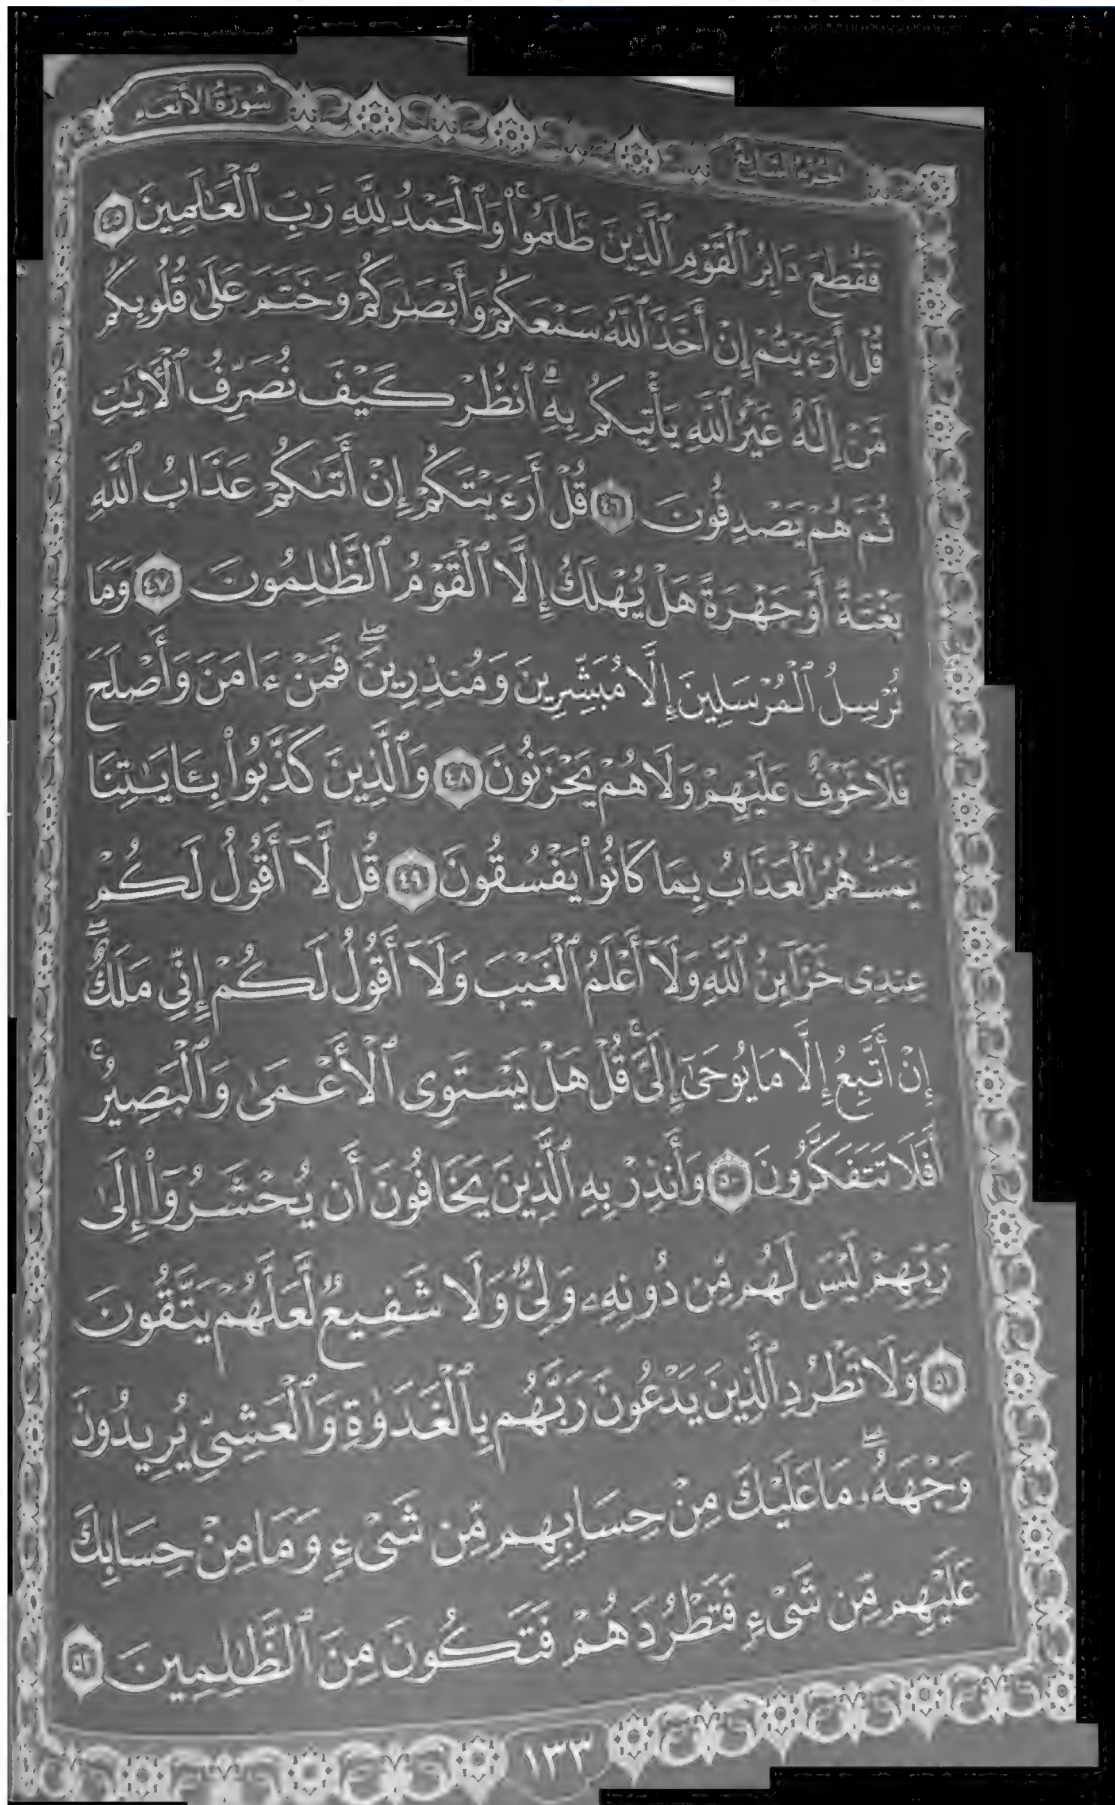 سُورَةُ الأَنْعَام
الجُزْءُ السَّابِعُ
فَقُطِعَ دَابِرُ ٱلْقَوْمِ ٱلَّذِينَ ظَلَمُوا۟ۚ وَٱلْحَمْدُ لِلَّهِ رَبِّ ٱلْعَٰلَمِينَ ٤٥
قُلْ أَرَءَيْتُمْ إِنْ أَخَذَ ٱللَّهُ سَمْعَكُمْ وَأَبْصَٰرَكُمْ وَخَتَمَ عَلَىٰ قُلُوبِكُم
مَّنْ إِلَٰهٌ غَيْرُ ٱللَّهِ يَأْتِيكُم بِهِۗ ٱنظُرْ كَيْفَ نُصَرِّفُ ٱلْءَايَٰتِ
ثُمَّ هُمْ يَصْدِفُونَ ٤٦ قُلْ أَرَءَيْتَكُمْ إِنْ أَتَىٰكُمْ عَذَابُ ٱللَّهِ
بَغْتَةً أَوْ جَهْرَةً هَلْ يُهْلَكُ إِلَّا ٱلْقَوْمُ ٱلظَّٰلِمُونَ ٤٧ وَمَا
نُرْسِلُ ٱلْمُرْسَلِينَ إِلَّا مُبَشِّرِينَ وَمُنذِرِينَۖ فَمَنْ ءَامَنَ وَأَصْلَحَ
فَلَا خَوْفٌ عَلَيْهِمْ وَلَا هُمْ يَحْزَنُونَ ٤٨ وَٱلَّذِينَ كَذَّبُوا۟ بِـَٔايَٰتِنَا
يَمَسُّهُمُ ٱلْعَذَابُ بِمَا كَانُوا۟ يَفْسُقُونَ ٤٩ قُل لَّآ أَقُولُ لَكُمْ
عِندِى خَزَآئِنُ ٱللَّهِ وَلَآ أَعْلَمُ ٱلْغَيْبَ وَلَآ أَقُولُ لَكُمْ إِنِّى مَلَكٌۖ
إِنْ أَتَّبِعُ إِلَّا مَا يُوحَىٰٓ إِلَىَّۚ قُلْ هَلْ يَسْتَوِى ٱلْأَعْمَىٰ وَٱلْبَصِيرُۚ
أَفَلَا تَتَفَكَّرُونَ ٥٠ وَأَنذِرْ بِهِ ٱلَّذِينَ يَخَافُونَ أَن يُحْشَرُوٓا۟ إِلَىٰ
رَبِّهِمْ لَيْسَ لَهُم مِّن دُونِهِۦ وَلِىٌّ وَلَا شَفِيعٌ لَّعَلَّهُمْ يَتَّقُونَ
٥١ وَلَا تَطْرُدِ ٱلَّذِينَ يَدْعُونَ رَبَّهُم بِٱلْغَدَوٰةِ وَٱلْعَشِىِّ يُرِيدُونَ
وَجْهَهُۥۖ مَا عَلَيْكَ مِنْ حِسَابِهِم مِّن شَىْءٍ وَمَا مِنْ حِسَابِكَ
عَلَيْهِم مِّن شَىْءٍ فَتَطْرُدَهُمْ فَتَكُونَ مِنَ ٱلظَّٰلِمِينَ ٥٢
١٣٣